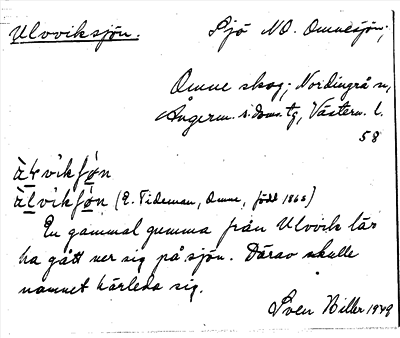 Ulvviksjön. Sjö NO. Omnesjön,
Omne skog; Nordingrå sn,
Ångerm. s. doms. tg, Västern. l.
58
(E. Tideman, Omne, född 1866)
En gammal gumma från Ulvvik lär
ha gått ner sig på sjön. Därav skulle
namnet härleda sig.
Sven Biller 1949